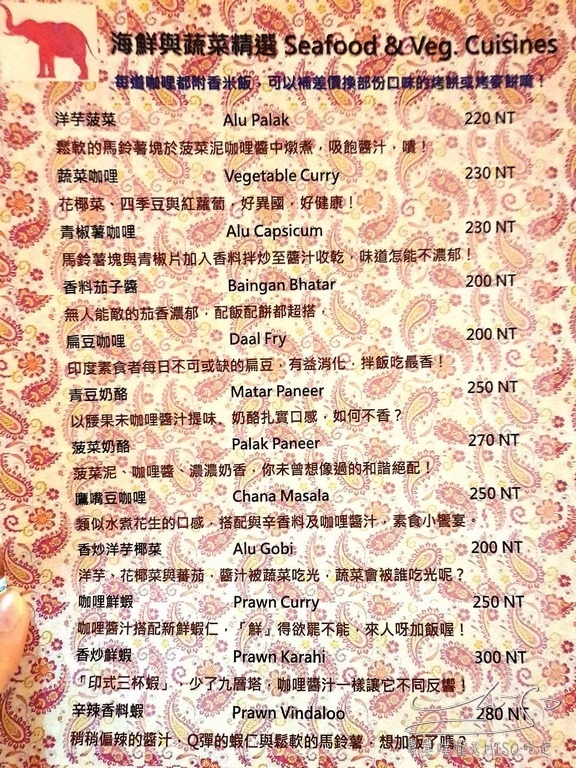 海鮮與蔬菜精選 Seafood & Veg. Cuisines
每道咖哩都附香米飯，可以補差價換部份口味的烤餅或烤麥餅噢！
洋芋菠菜 Alu Palak 220 NT
鬆軟的馬鈴薯塊於菠菜泥咖哩醬中燉煮，吸飽醬汁，嘖！
蔬菜咖哩 Vegetable Curry 230 NT
花椰菜、四季豆與紅蘿蔔，好異國，好健康！
青椒薯咖哩 Alu Capsicum 230 NT
馬鈴薯塊與青椒片加入香料拌炒至醬汁收乾，味道怎能不濃郁！
香料茄子醬 Baingan Bhatar 200 NT
無人能敵的茄香濃郁，配飯配餅都超搭，
扁豆咖哩 Daal Fry 200 NT
印度素食者每日不可或缺的扁豆，有益消化，拌飯吃最香！
青豆奶酪 Matar Paneer 250 NT
以腰果未咖哩醬汁提味，奶酪扎實口感，如何不香？
菠菜奶酪 Palak Paneer 270 NT
菠菜泥、咖哩醬、濃濃奶香，你未曾想像過的和諧絕配！
鷹嘴豆咖哩 Chana Masala 250 NT
類似水煮花生的口感，搭配與辛香料及咖哩醬汁，素食小饗宴。
香炒洋芋椰菜 Alu Gobi 200 NT
洋芋、花椰菜與蕃茄，醬汁被蔬菜吃光，蔬菜會被誰吃光呢？
咖哩鮮蝦 Prawn Curry 250 NT
咖哩醬汁搭配新鮮蝦仁，「鮮」得欲罷不能，來人呀加飯喔！
香炒鮮蝦 Prawn Karahi 300 NT
「印式三杯蝦」，少了九層塔，咖哩醬汁一樣讓它不同反響！
辛辣香料蝦 Prawn Vindaloo 280 NT
稍稍偏辣的醬汁，Q彈的蝦仁與鬆軟的馬鈴薯，想加飯了嗎？